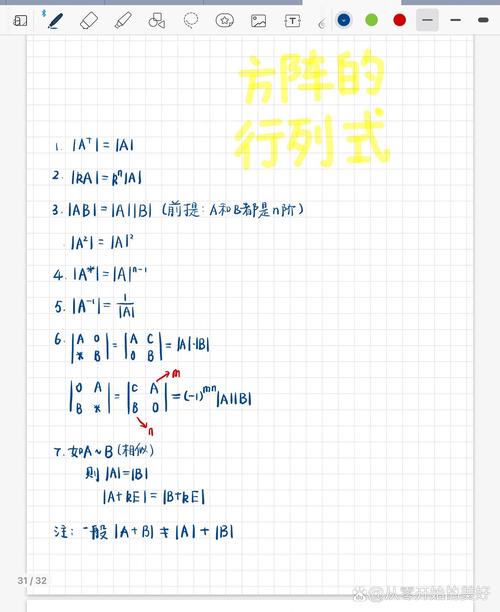 方阵的
行列式
1. |Aᵀ| = |A|
2. |kA| = kⁿ|A|
3. |AB| = |A||B| (前提: A和B都是n阶)
|A²| = |A|²
4. |A*| = |A|ⁿ⁻¹
5. |A⁻¹| = 1/|A|
6. |A 0; * B| = |A C; 0 B| = |A|·|B|
|0 A; B *| = |C A; B 0| = (-1)ᵐⁿ|A||B|
m
n
7. 如A~B (相似)
则 |A| = |B|
|A+kE| = |B+kE|
注: 一般 |A+B| ≠ |A| + |B|
31 / 32
@从零开始的美好